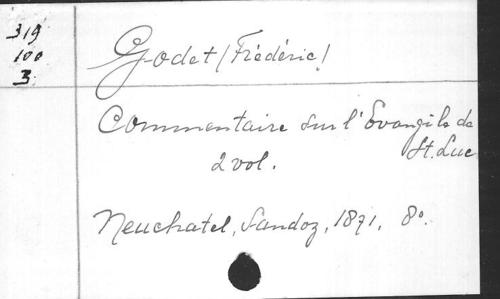 319
100
3
Godet (Frédéric)
Commentaire sur l'Evangile de
St. Luc
2 vol.
Neuchatel, Sandoz, 1871, 8o.